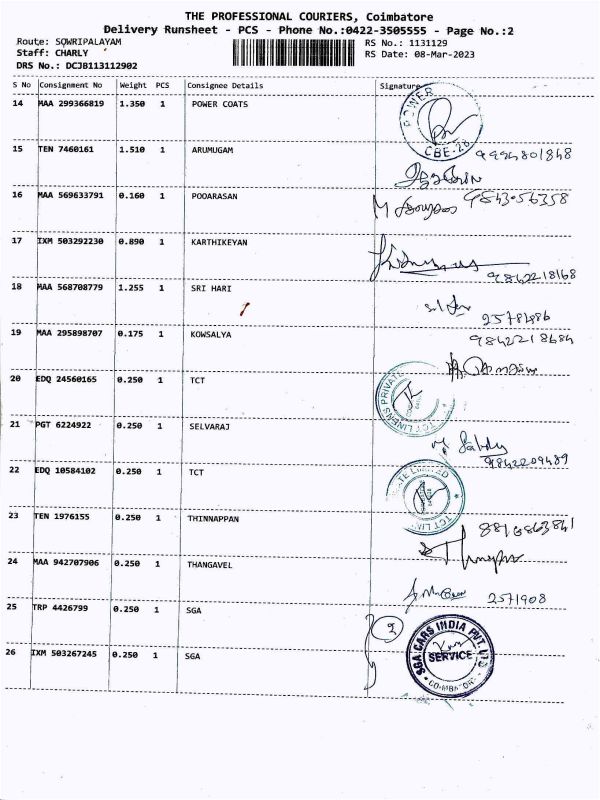 THE PROFESSIONAL COURIERS, Coimbatore
Delivery Runsheet - PCS - Phone No.:0422-3505555 - Page No.:2
Route: SOWRIPALAYAM RS No.: 1131129
Staff: CHARLY RS Date: 08-Mar-2023
DRS No.: DCJB113112902
S No Consignment No Weight PCS Consignee Details Signature
14 MAA 299366819 1.350 1 POWER COATS
POWER
CBE-28
15 TEN 7460161 1.510 1 ARUMUGAM
16 MAA 569633791 0.160 1 POOARASAN
17 IXM 503292230 0.890 1 KARTHIKEYAN
9842218168
18 MAA 568708779 1.255 1 SRI HARI
19 MAA 295898707 0.175 1 KOWSALYA
20 EDQ 24560165 0.250 1 TCT
TCT LINENS PRIVATE
21 PGT 6224922 0.250 1 SELVARAJ
9842209489
22 EDQ 10584102 0.250 1 TCT
LIMITED
23 TEN 1976155 0.250 1 THINNAPPAN
24 MAA 942707906 0.250 1 THANGAVEL
2571908
25 TRP 4426799 0.250 1 SGA
2
26 IXM 503267245 0.250 1 SGA
SGA CARS INDIA PVT. LTD
SERVICE